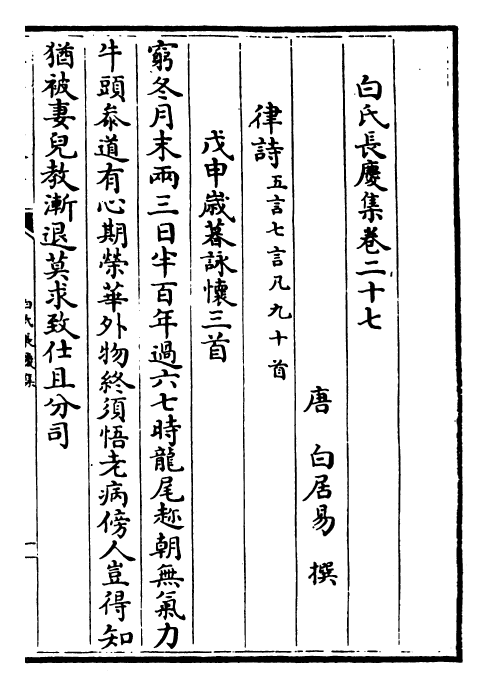 白氏長慶集卷二十七
唐 白居易 撰
律詩五言七言凡九十首
戊申歲暮詠懷三首
窮冬月末兩三日半百年過六七時龍尾趂朝無氣力
牛頭叅道有心期榮華外物終須悟老病傍人豈得知
猶被妻兒教漸退莫求致仕且分司
白氏長慶集
一